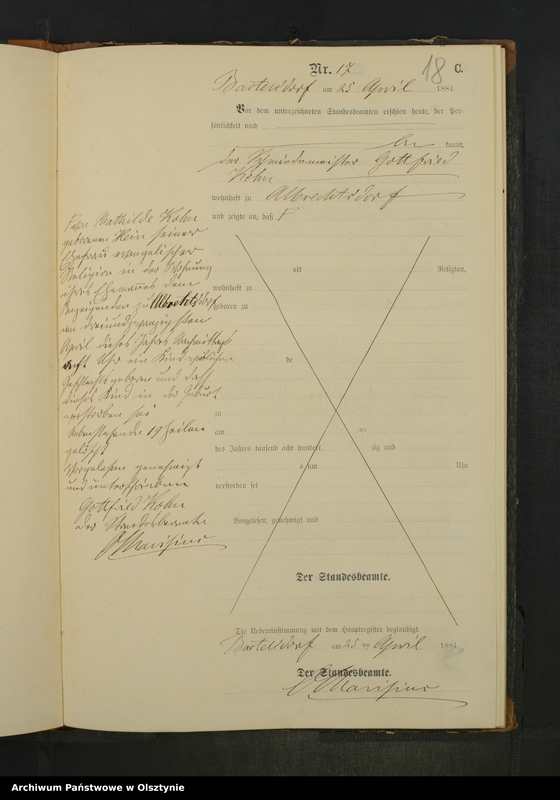 Nr. 17
18 C.
Bartelsdorf am 25 April 1884.
Vor dem unterzeichneten Standesbeamten erschien heute, der Per-
sönlichkeit nach
be kannt,
der Schmiedemeister Gottfried
Kohn
wohnhaft zu Albrechtsdorf
und zeigte an, daß
Frau Mathilde Kohn
geborenen Hein seiner
Ehefrau evangelischer
Religion in der Wohnung
ihres Ehemannes dem
Anzeigenden zu Albrechtsdorf
am dreiundzwanzigsten
April dieses Jahres Nachmittags
acht Uhr ein Kind
Geschlechts geboren und daß
dieses Kind in der Geburt
verstorben sei
Nebenstehende 19 Zeilen
gelöscht
Vorgelesen genehmigt
und unterschrieben
Gottfried Kohn
der Standesbeamte
alt Religion,
wohnhaft zu
geboren zu
de
zu
am ten
des Jahres tausend acht hundert zig und
um Uhr
verstorben sei
Vorgelesen, genehmigt und
Der Standesbeamte.
Die Uebereinstimmung mit dem Hauptregister beglaubigt.
Bartelsdorf am 25 ten April 1884
Der Standesbeamte.
Archiwum Państwowe w Olsztynie